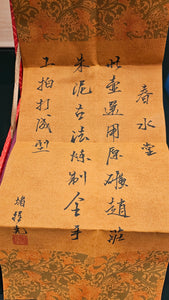 春水堂
此壺選用原礦趙莊
朱泥古法炼制全手
工拍打成型